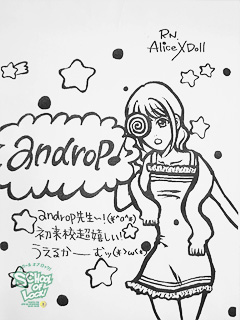 RN.
Alice X Doll
androp
androp先生~!(*^o^*)
初来校超嬉しい!
うえるかーーむッ(*>ω<*)
SCHOOL
OF
LOCK!